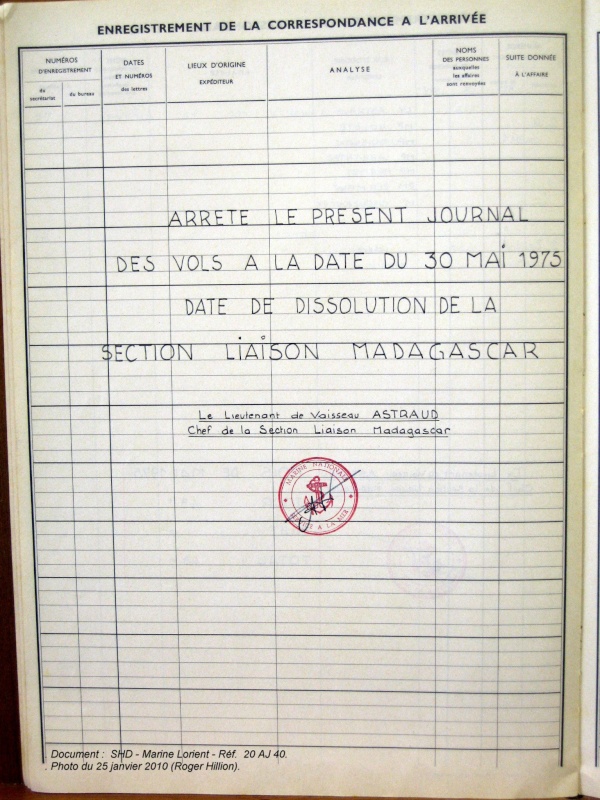 ENREGISTREMENT DE LA CORRESPONDANCE A L'ARRIVÉE
NUMÉROS
D'ENREGISTREMENT
du
secrétariat
du bureau
DATES
ET NUMÉROS
des lettres
LIEUX D'ORIGINE
EXPÉDITEUR
ANALYSE
NOMS
DES PERSONNES
auxquelles
les affaires
sont renvoyées
SUITE DONNÉE
À L'AFFAIRE
ARRETE LE PRESENT JOURNAL
DES VOLS A LA DATE DU 30 MAi 1975
DATE DE DISSOLUTION DE LA
SECTION LiAiSON MADAGASCAR
Le Lieutenant de Vaisseau ASTRAUD
Chef de la Section Liaison Madagascar
MARINE NATIONALE
A LA MER
Document : SHD - Marine Lorient - Réf. 20 AJ 40.
. Photo du 25 janvier 2010 (Roger Hillion).